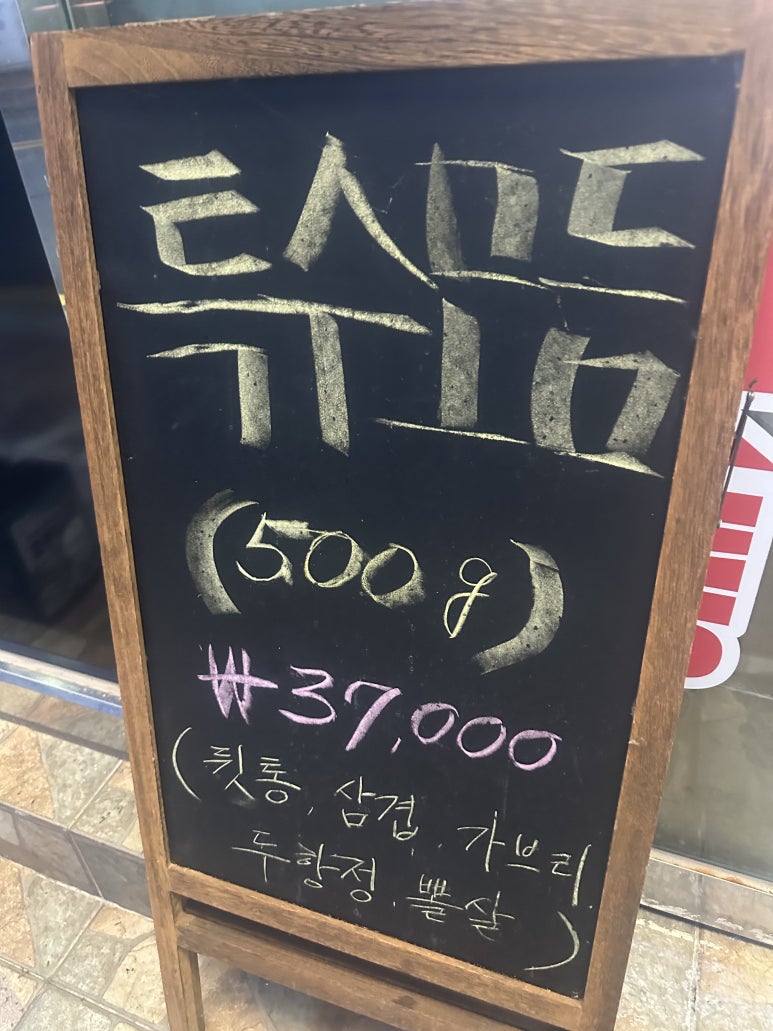 특수모둠
(500g)
₩37,000
(뒷통, 삼겹, 가브리,
두항정, 뽈살)